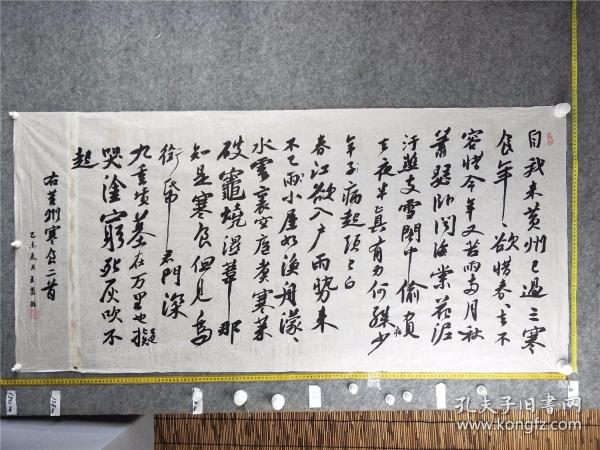 自我来黄州已過三寒
食年〻欲惜春〻去不
容惜今年又苦雨兩月秋
蕭瑟卧闻海棠花泥
汙燕支雪闇中偷負
去夜半真有力何殊少
年子病起頭已白
春江欲入户雨势来
不已雨小屋如渔舟濛〻
水雲裏空庖煮寒菜
破竈燒湿葦那
知是寒食但见烏
銜帋君門深
九重墳墓在万里也擬
哭塗窮死灰吹不
起
右黄州寒食二首
乙未夏月
孔夫子旧书网
www.kongfz.com